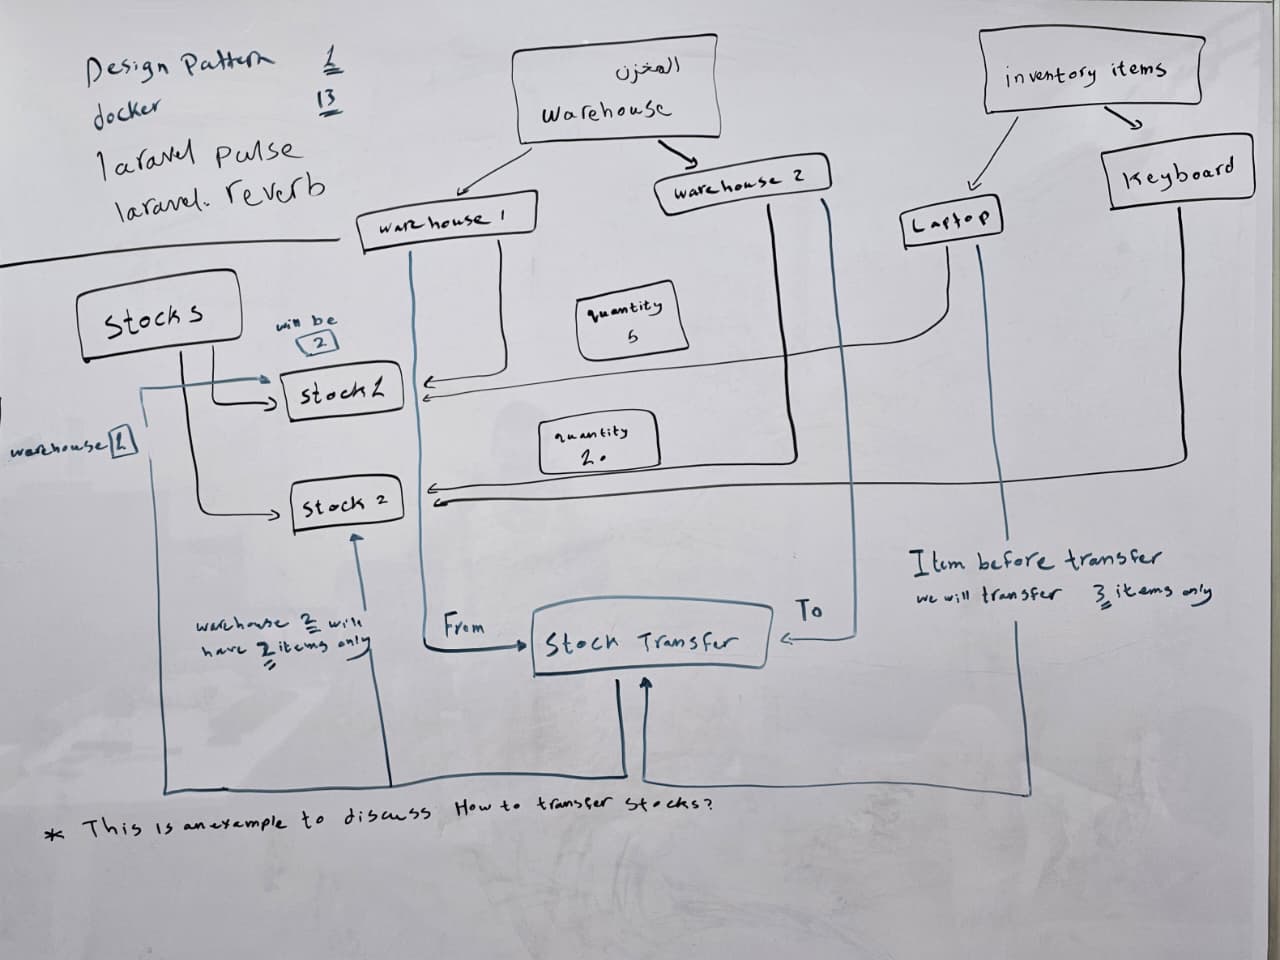 Design Pattern 1
docker 13
laravel pulse
laravel. reverb
المخزن
Warehouse
inventory items
warehouse 1
warehouse 2
Laptop
Keyboard
Stocks
will be
2
quantity
5
Stock 1
warehouse 1
quantity
2.
Stock 2
Item before transfer
we will transfer 3 items only
warehouse 2 will
have 2 items only
From
Stock Transfer
To
* This is an example to discuss How to transfer stocks?